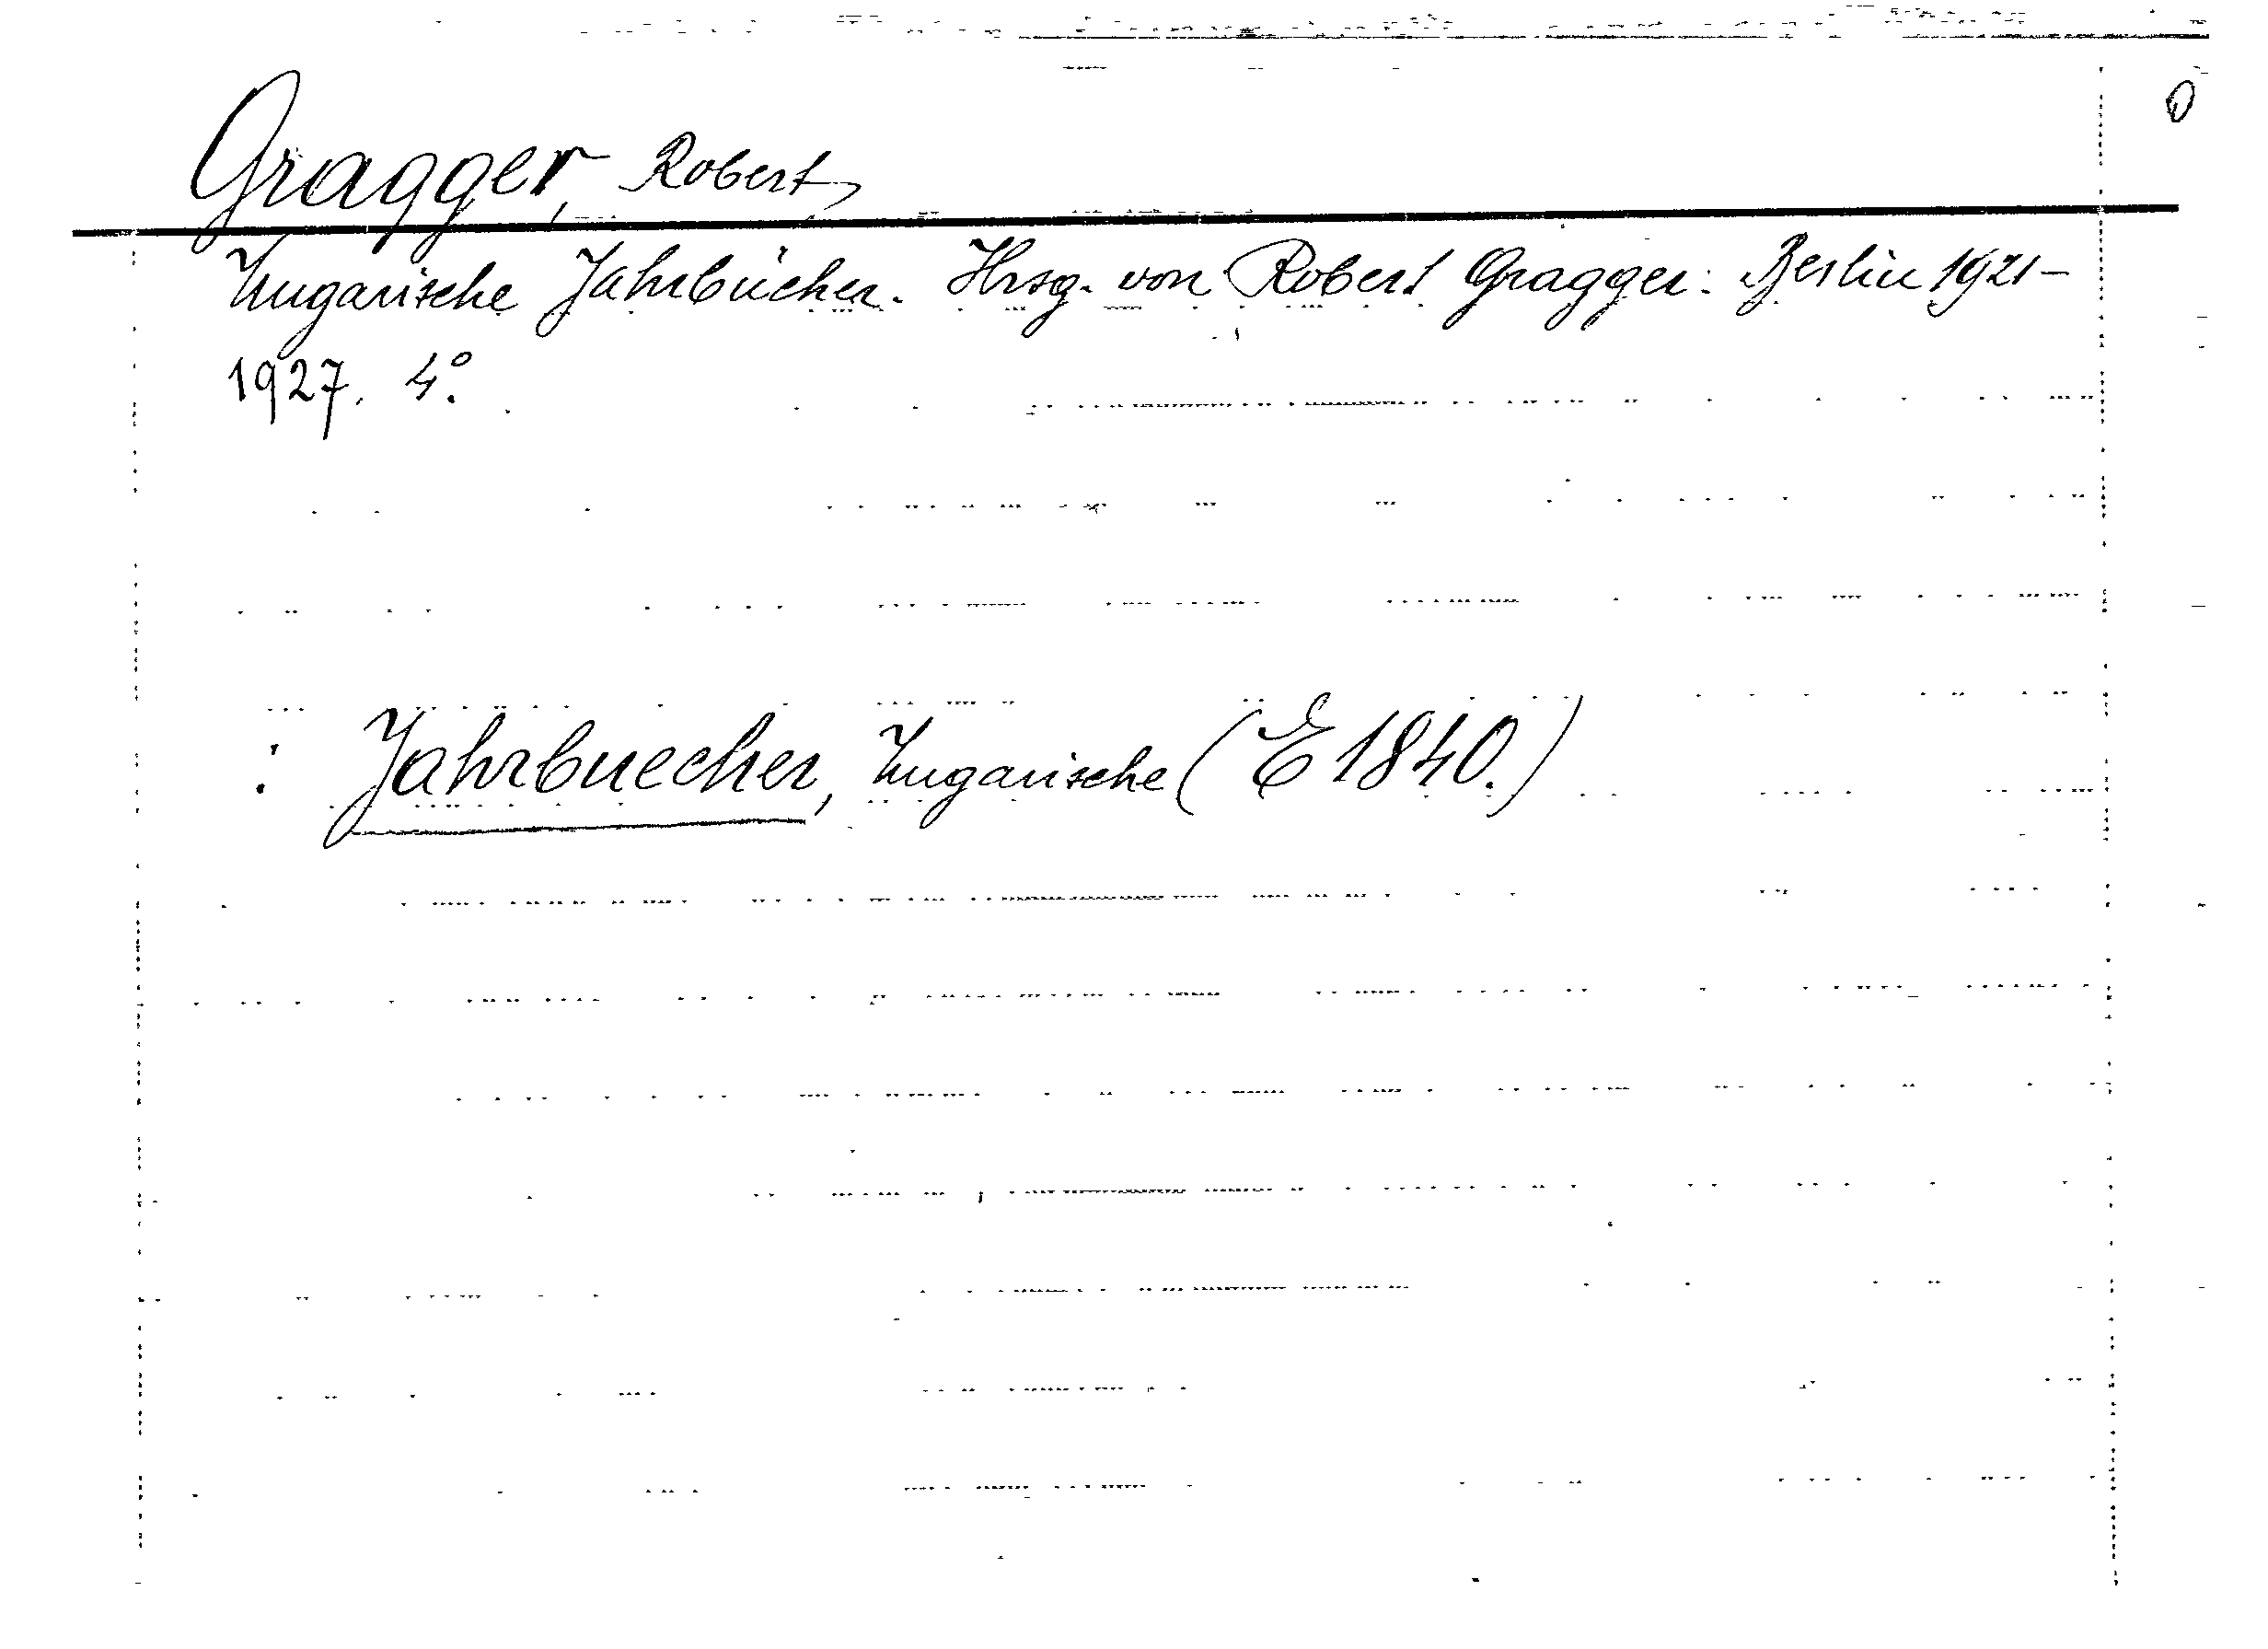 O
Gragger, Robert,
Ungarische Jahrbücher. Hrsg. von Robert Gragger. Berlin 1921-
1927. 4°.
: Jahrbuecher, Ungarische (E 1840.)